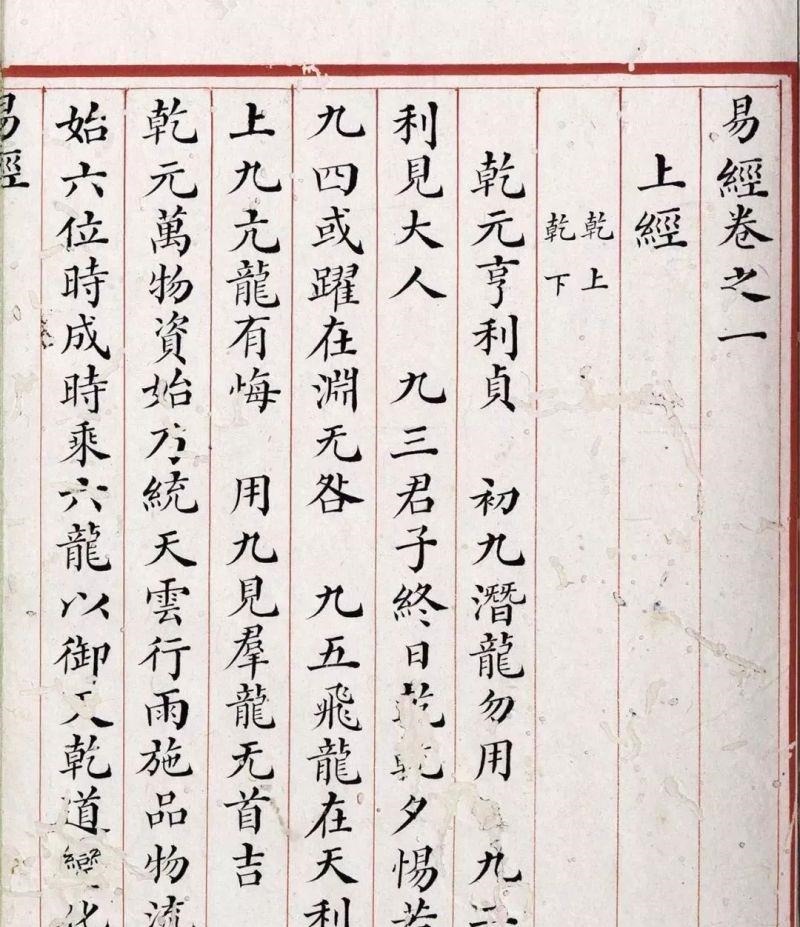 易經卷之一
上經
乾上
乾下
乾元亨利貞 初九潛龍勿用 九二
利見大人 九三君子終日乾乾夕惕若
九四或躍在淵无咎 九五飛龍在天利
上九亢龍有悔 用九見羣龍无首吉
乾元萬物資始乃統天雲行雨施品物流
始六位時成時乘六龍以御天乾道變化
易經